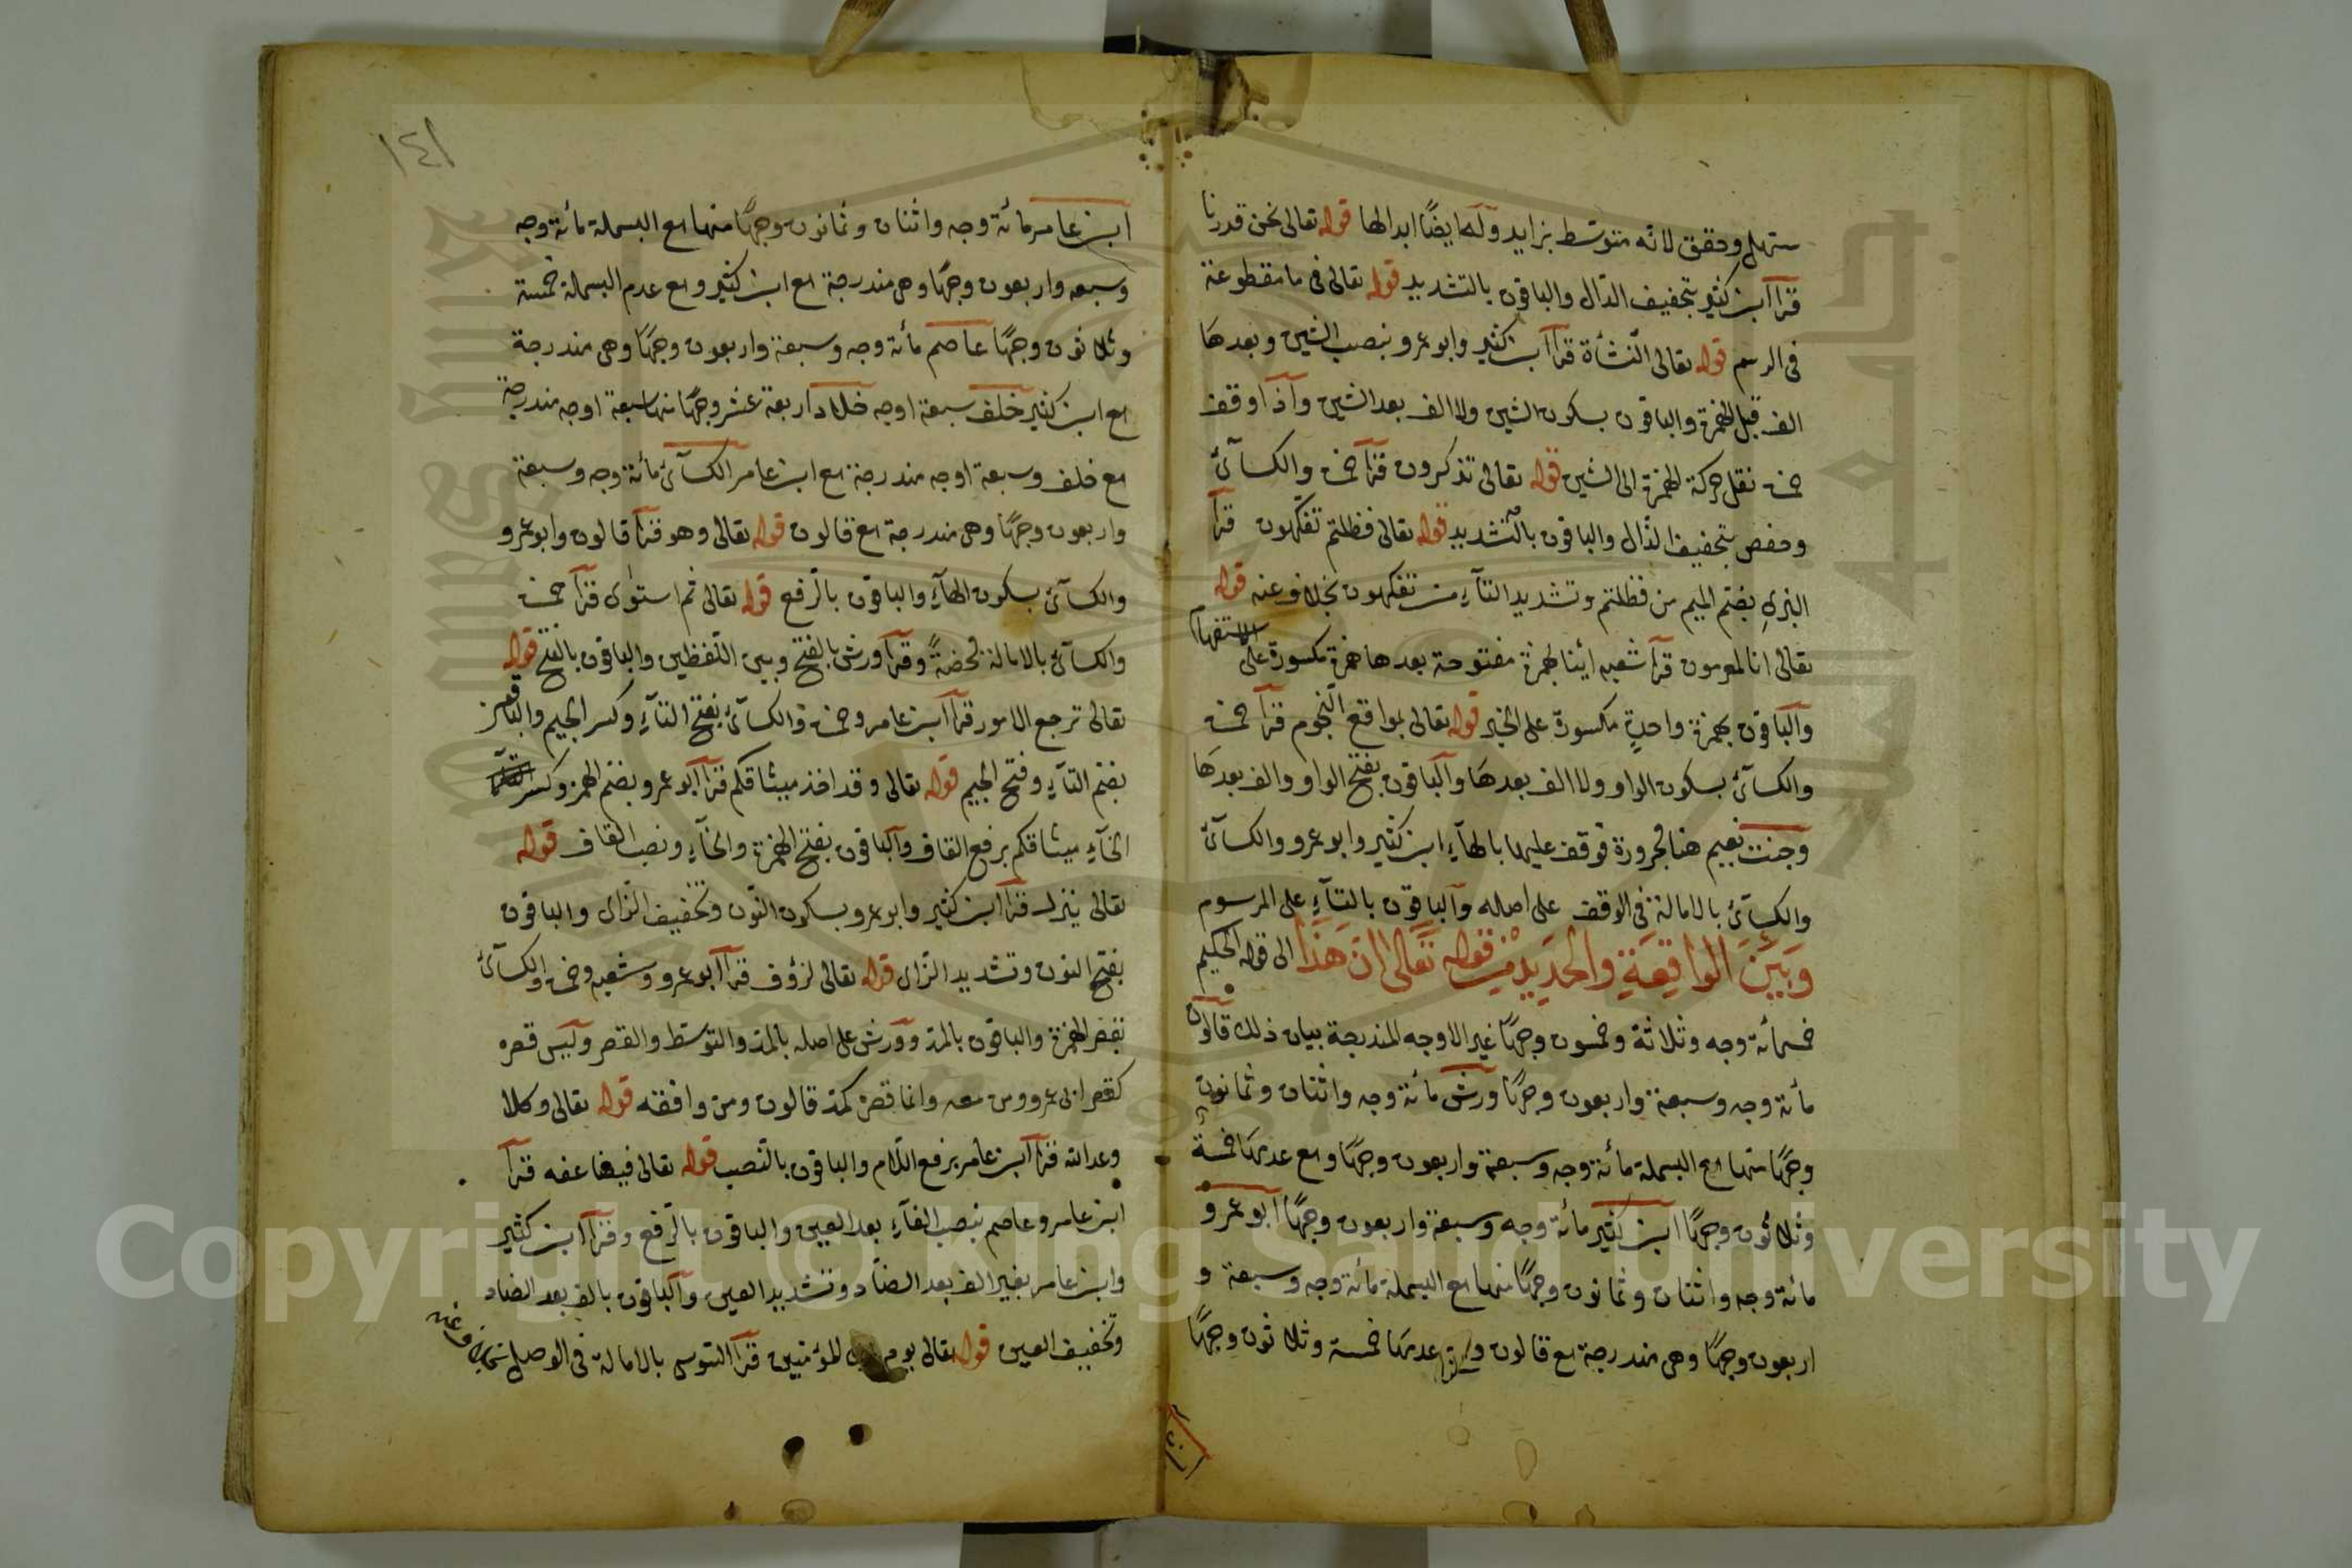 سهل وحقق لانه متوسط بزايد وله ايضًا ابدالها قوله تعالى نحن قدرنا
قرأ ابن كثير بتخفيف الدال والباقون بالتشديد قوله تعالى في ما مقطوعة
في الرسم قوله تعالى النشأة قرأ ابن كثير وابو عمرو بنصب الشين وبعدها
الف قبل الهمزة والباقون بسكون الشين ولا الف بعد الشين واذا وقف
حمزة نقل حركة الهمزة الى الشين قوله تعالى تذكرون قرأ حمزة والكسآئ
وحفص بتخفيف الذال والباقون بالتشديد قوله تعالى فظلتم تفكهون قرأ
البزي بضم الميم من فظلتم وتشديد التآء من تفكهون بخلاف عنه قوله
تعالى انا لمغرمون قرأ شعبه ائنا بهمزة مفتوحة بعدها همزة مكسورة على الاستفهام
والباقون بهمزة واحدة مكسورة على الخبر قوله تعالى بمواقع النجوم قرأ حمزة
والكسآئ بسكون الواو ولا الف بعدها والباقون بفتح الواو والف بعدها
وجنت نعيم هنا مجرورة فوقف عليها بالهآء ابن كثير وابو عمرو والكسآئ
والكسآئ بالامالة في الوقف على اصله والباقون بالتآء على المرسوم
وبين الواقعة والحديد من قوله تعالى ان هذا الى قوله الحكيم
خمسمائة وجه وثلاثة وخمسون وجهًا غير الاوجه المندرجة بيان ذلك قالون
مائة وجه وسبعة واربعون وجهًا ورش مائة وجه واثنان وثمانون
وجهًا منها مع البسملة مائة وجه وسبعة واربعون وجهًا ومع عدمها خمسة
وثلاثون وجهًا ابن كثير مائة وجه وسبعة واربعون وجهًا ابو عمرو
مائة وجه واثنان وثمانون وجهًا منها مع البسملة مائة وجه وسبعة و
اربعون وجهًا وهى مندرجة مع قالون و عدمها خمسة وثلاثون وجهًا
ابن
١٤١
ابن عامر مائة وجه واثنان وثمانون وجهًا منها مع البسملة مائة وجه
وسبعه واربعون وجهًا وهى مندرجة مع ابن كثير ومع عدم البسملة خمسة
وثلاثون وجهًا عاصم مائة وجه وسبعة واربعون وجهًا وهى مندرجة
مع ابن كثير خلف سبعة اوجه خلاد اربعة عشر وجهًا منها سبعة اوجه مندرجة
مع خلف وسبعة اوجه مندرجة مع ابن عامر الكسآئ مائة وجه وسبعة
واربعون وجهًا وهى مندرجة مع قالون قوله تعالى وهو قرأ قالون وابو عمرو
والكسآئ بسكون الهآء والباقون بالرفع قوله تعالى ثم استوى قرأ حمزة
والكسآئ بالامالة محضةً وقرأ ورش بالفتح وبين اللفظين والباقون بالفتح قوله
تعالى ترجع الامور قرأ ابن عامر وحمزة والكسآئ بفتح التآء وكسر الجيم والباقون
بضم التآء وفتح الجيم قوله تعالى وقد اخذ ميثاقكم قرأ ابو عمرو بضم الهمزة وكسر
الخآء ميثاقكم برفع القاف والباقون بفتح الهمزة والخآء ونصب القاف قوله
تعالى ينزل قرأ ابن كثير وابو عمرو بسكون النون وتخفيف الزاى والباقون
بفتح النون وتشديد الزاى قوله تعالى لرؤف قرأ ابو عمرو وشعبه وحمزة والكسآئ
بقصر الهمزة والباقون بالمد وورش على اصله بالمد والتوسط والقصر وليس قصره
كقصر ابى عمرو ومن معه وانما قصره كمد قالون ومن وافقه قوله تعالى وكلا
وعد الله قرأ ابن عامر برفع اللام والباقون بالنصب قوله تعالى فيضاعفه قرأ
ابن عامر وعاصم بنصب الفآء بعد العين والباقون بالرفع وقرأ ابن كثير
وابن عامر بغير الف بعد الضاد وتشديد العين والباقون بالف بعد الضاد
وتخفيف العين قوله تعالى يوم المؤمنين قرأ السوسى بالامالة في الوصل بخلاف عنه
Copyright © King Saud University